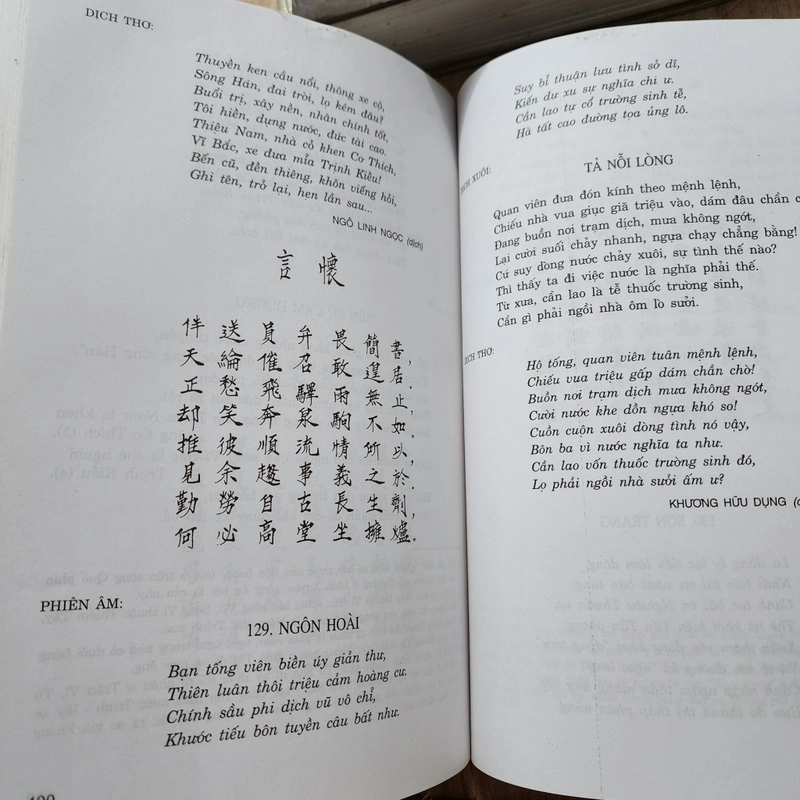 DỊCH THƠ:
Thuyền ken cầu nổi, thông xe cộ,
Sông Hán, đai trời, lọ kém đâu?
Buổi trị, xây nền, nhân chính tốt,
Tôi hiền, dựng nước, đức tài cao.
Thiêu Nam, nhà cỏ khen Cơ Thích,
Vĩ Bắc, xe đưa mỉa Trịnh Kiều!
Bến cũ, đền thiêng, khôn viếng hỏi,
Ghi tên, trở lại, hẹn lần sau...
NGÔ LINH NGỌC (dịch)
言懷
伴送員弁畏簡書,
天綸催召敢遑居.
正愁飛驛雨無止,
却笑奔泉駒不如.
推彼順流情所以,
見余趨事義之於.
勤勞自古長生劑,
何必高堂坐擁爐.
PHIÊN ÂM:
129. NGÔN HOÀI
Bạn tống viên biền úy giản thư,
Thiên luân thôi triệu cảm hoàng cư.
Chính sầu phi dịch vũ vô chỉ,
Khước tiếu bôn tuyền câu bất như.
Suy bỉ thuận lưu tình sở dĩ,
Kiến dư xu sự nghĩa chi ư.
Cần lao tự cổ trường sinh tễ,
Hà tất cao đường tọa ủng lô.
XUÔI:
TẢ NỖI LÒNG
Quan viên đưa đón kính theo mệnh lệnh,
Chiếu nhà vua giục giã triệu vào, dám đâu chần
Đang buồn nơi trạm dịch, mưa không ngớt,
Lại cười suối chảy nhanh, ngựa chạy chẳng bằng!
Cứ suy dòng nước chảy xuôi, sự tình thế nào?
Thì thấy ta đi việc nước là nghĩa phải thế.
Từ xưa, cần lao là tễ thuốc trường sinh,
Cần gì phải ngồi nhà ôm lò sưởi.
DỊCH THƠ:
Hộ tống, quan viên tuân mệnh lệnh,
Chiếu vua triệu gấp dám chần chờ!
Buồn nơi trạm dịch mưa không ngớt,
Cười nước khe dồn ngựa khó so!
Cuồn cuộn xuôi dòng tình nó vậy,
Bôn ba vì nước nghĩa ta như.
Cần lao vốn thuốc trường sinh đó,
Lọ phải ngồi nhà sưởi ấm ư?
KHƯƠNG HỮU DỤNG